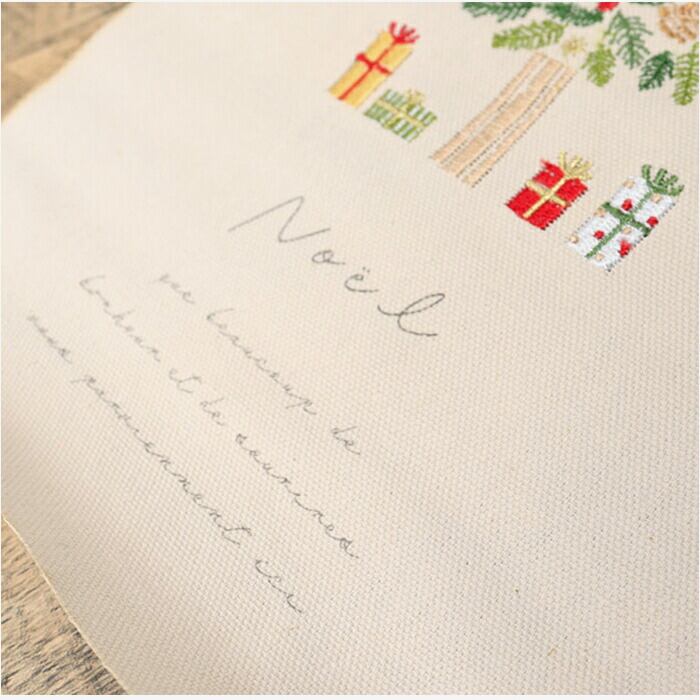 Noël
que beaucoup de
bonheur et de sourires
vous parviennent ici